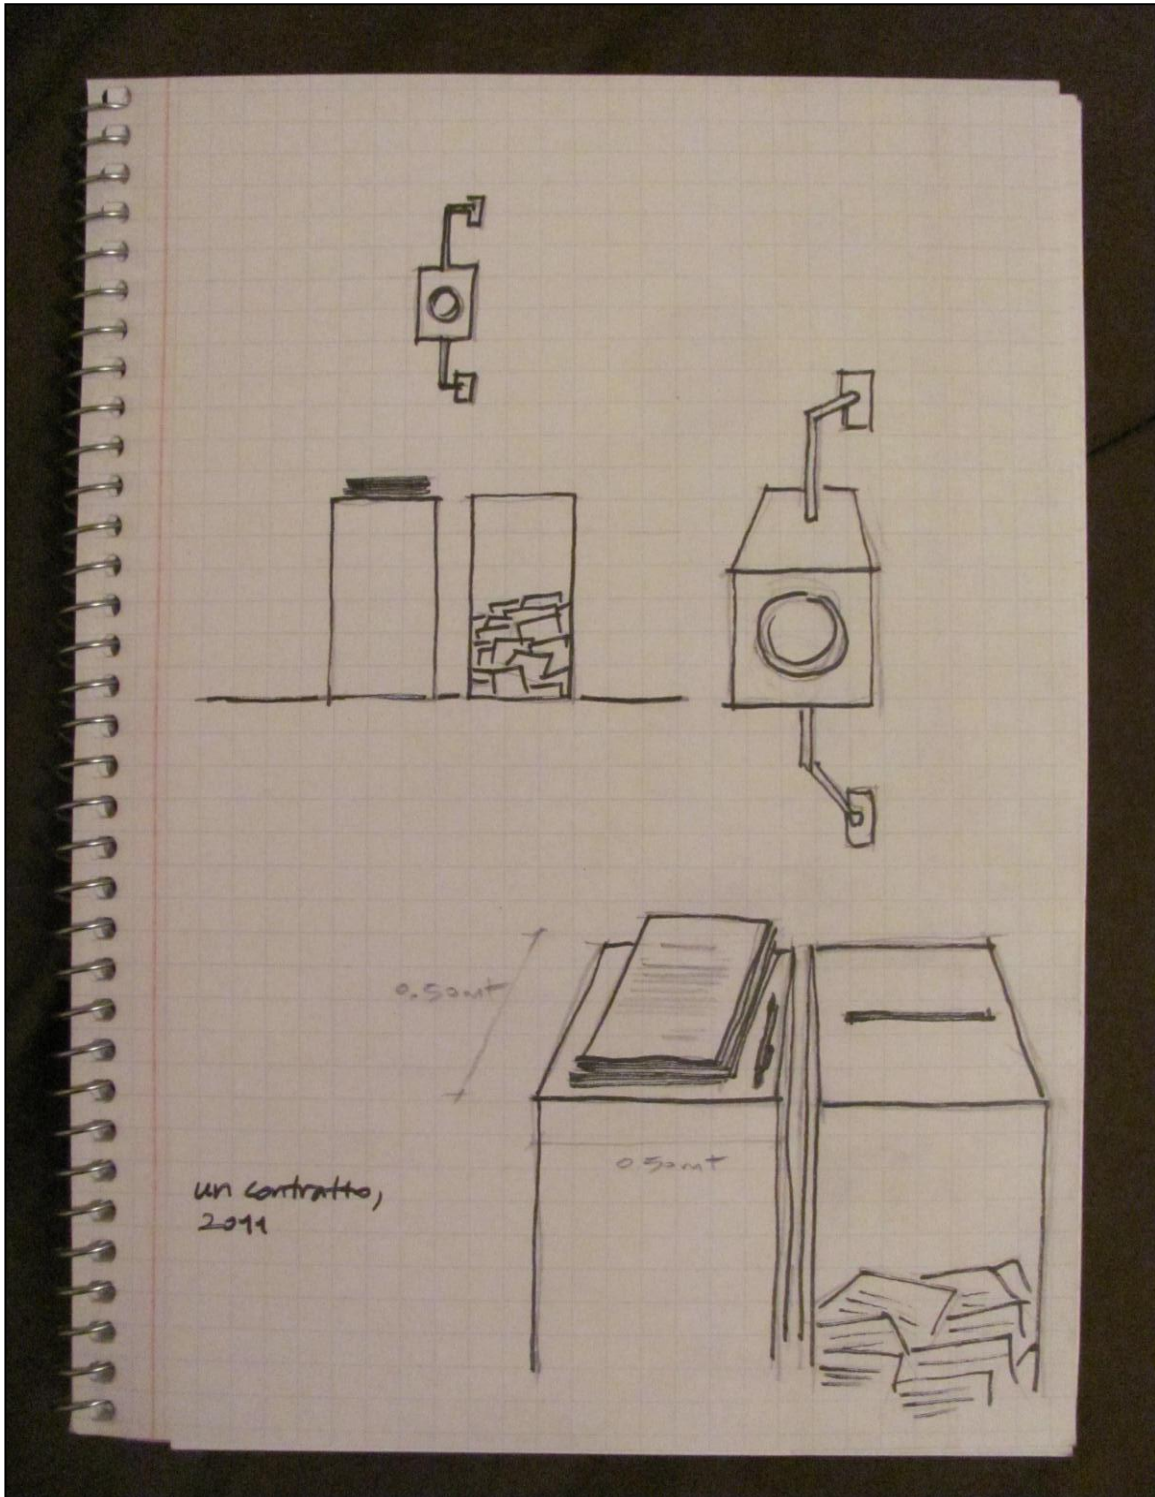 0.50mt
0.50mt
un contratto,
2011